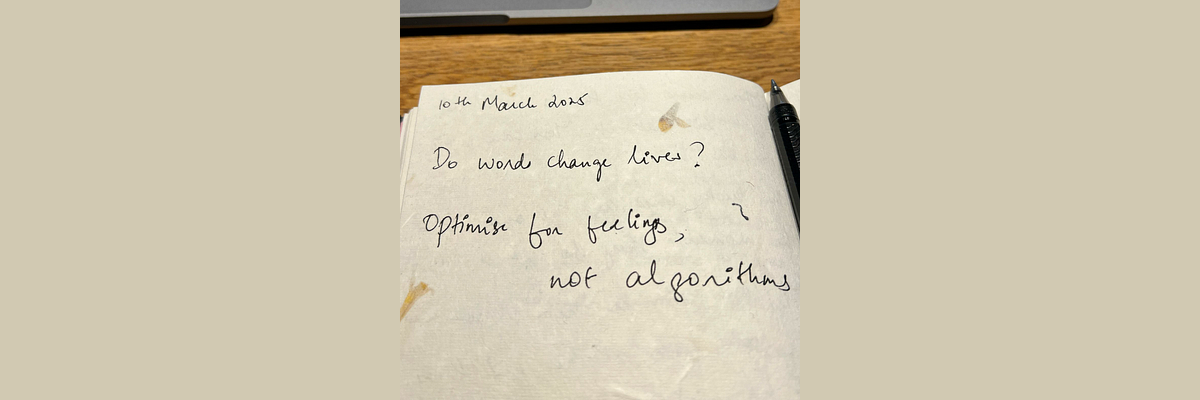 10th March 2025
Do words change lives?
Optimise for feelings,
not algorithms